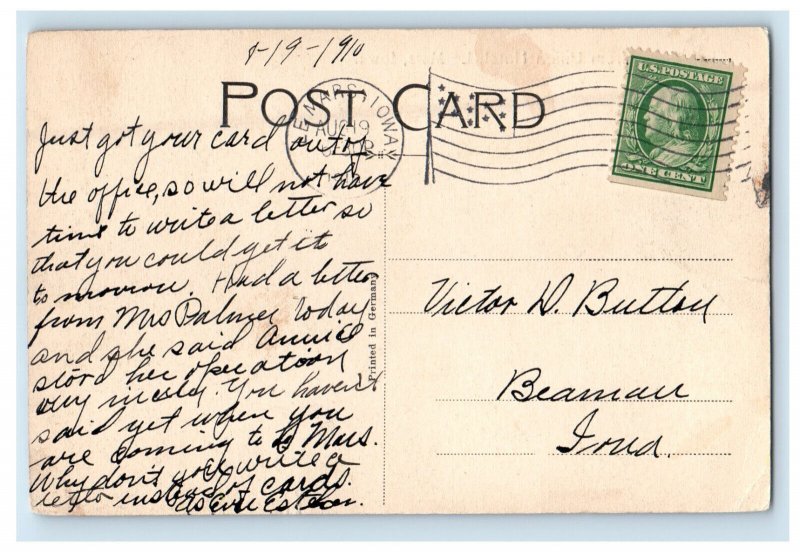 8-19-1910
POST CARD
LE MARS, IOWA
AUG 19
U.S. POSTAGE
ONE CENT
Just got your card out of
the office, so will not have
time to write a letter so
that you could get it
to morrow. Had a letter
from Mrs Palmer today
and she said Annie
stood her operation
very nicely. You haven't
said yet when you
are coming to Le Mars.
Why don't you write a
letter instead of cards.
As Ever
Printed in Germany
Victor D. Button
Beaman
Iowa.